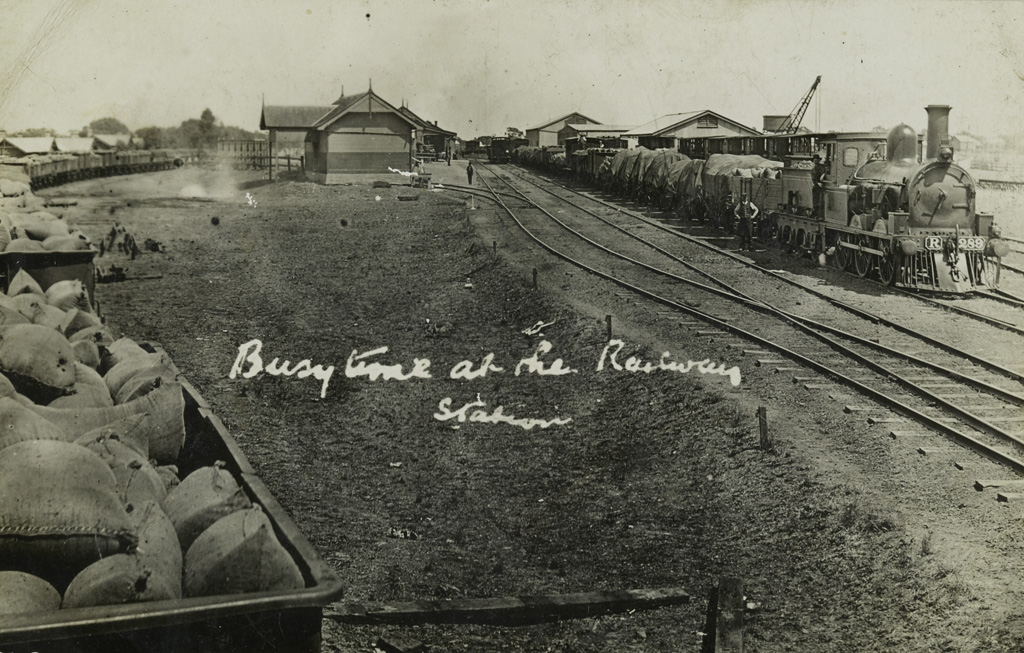 Busy time at the Railway
Station
R 289